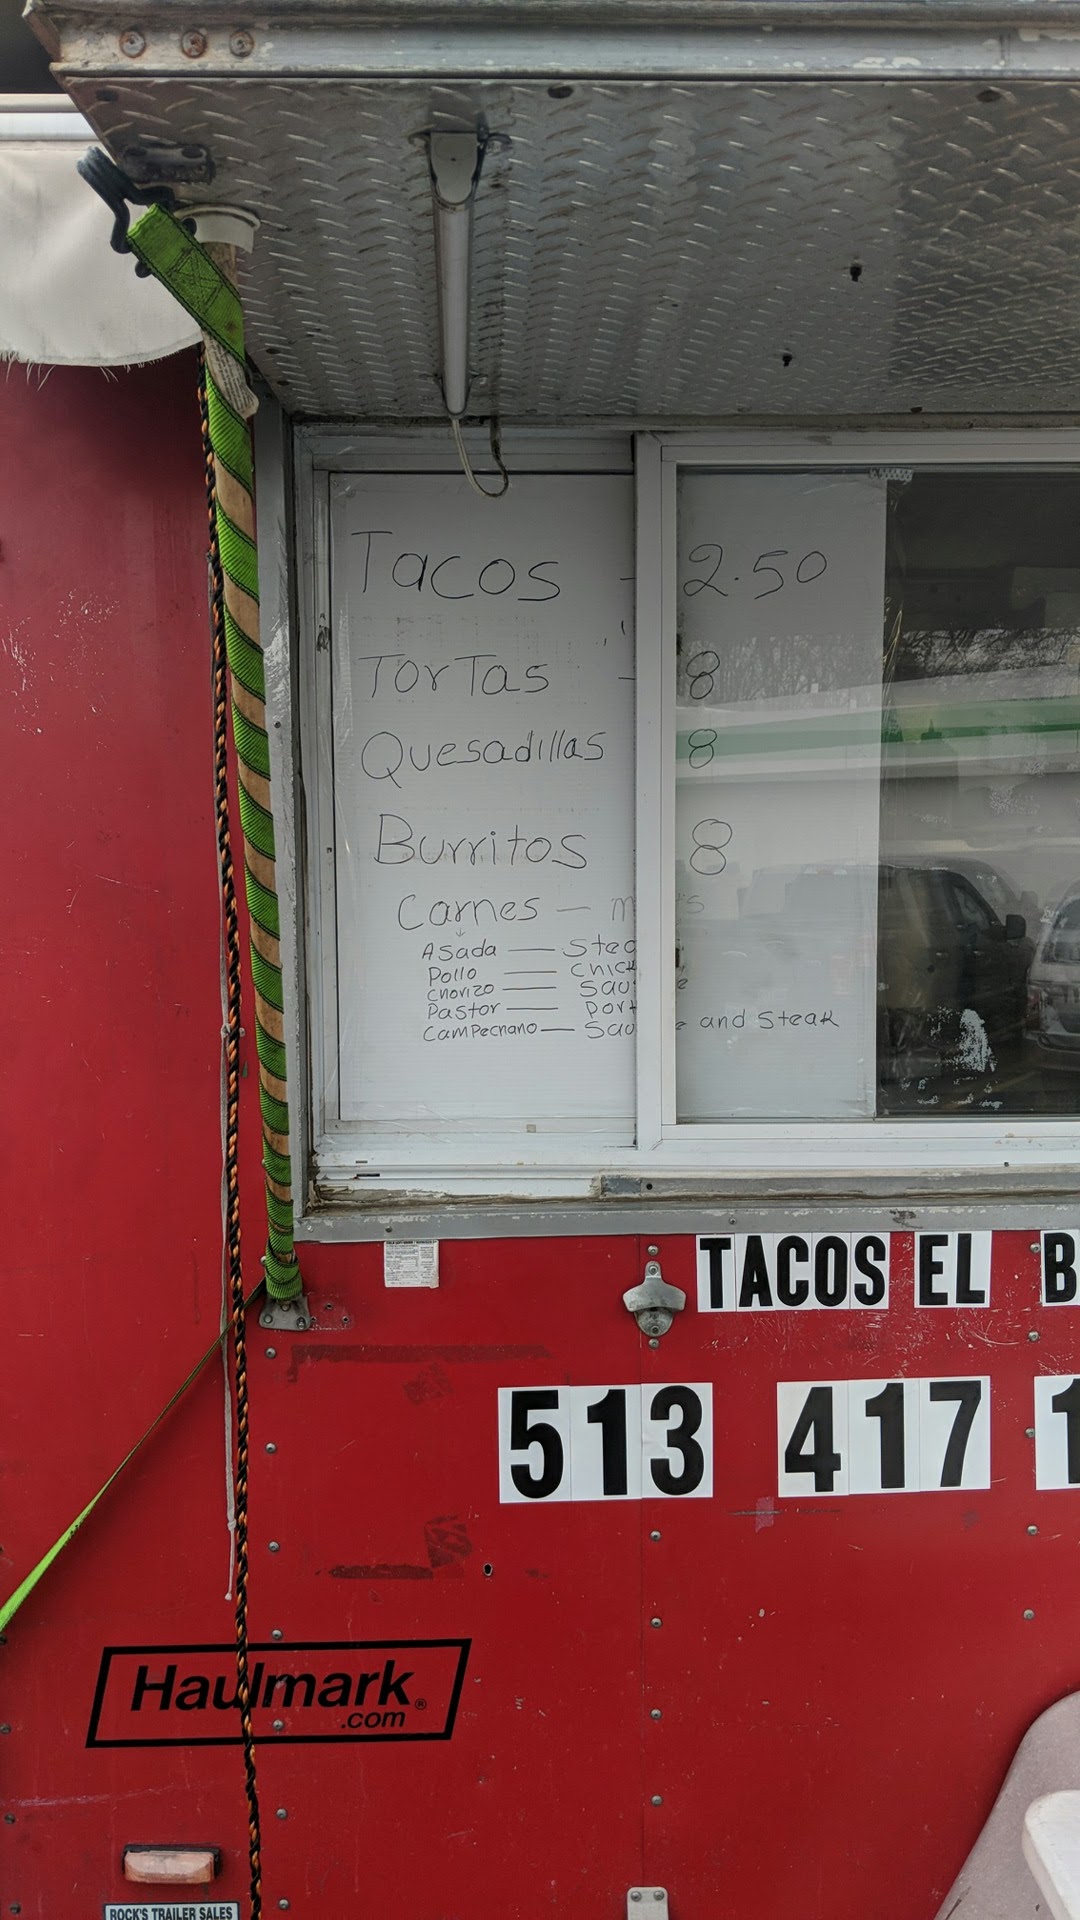 Tacos - 2.50
TorTas - 8
Quesadillas 8
Burritos 8
Carnes —
Asada —
Pollo —
Chorizo —
Pastor —
Campechano — and Steak
TACOS EL
513 417
Haulmark®
.com
ROCK'S TRAILER SALES